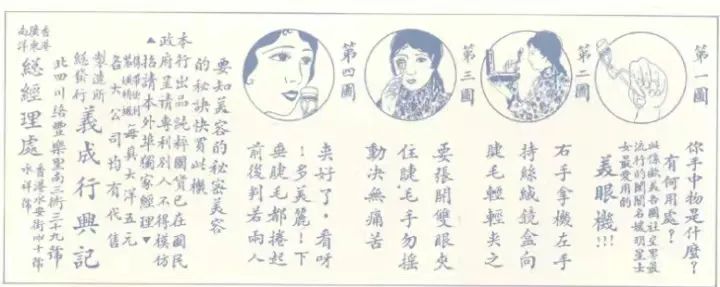 第一圖
你手中物是什麼?
有何用處?
此係歐美各國社交界最
流行的閨閣名媛明星士
女最愛用的
美眼機!!!
第二圖
右手拿機左手
持絲絨鏡盒向
睫毛輕輕夾之
第三圖
要張開雙眼夾
住睫毛手勿搖
動決無痛苦
第四圖
夹好了,看呀
!多美麗!下
無睫毛都捲起
前後判若兩人
要知美容的秘密美容
的秘訣快買此機
本行出品純粹國貨已在國民
政府呈請專利別人不得模仿
▲招請本外埠獨家經理▼
每具大洋五元
各大公司均有代售
製造所
總發行
義成行興記
北四川路豐樂里南三街三十九號
香港
廣東
南洋
總經理處
香港永安街四十號
永祥號